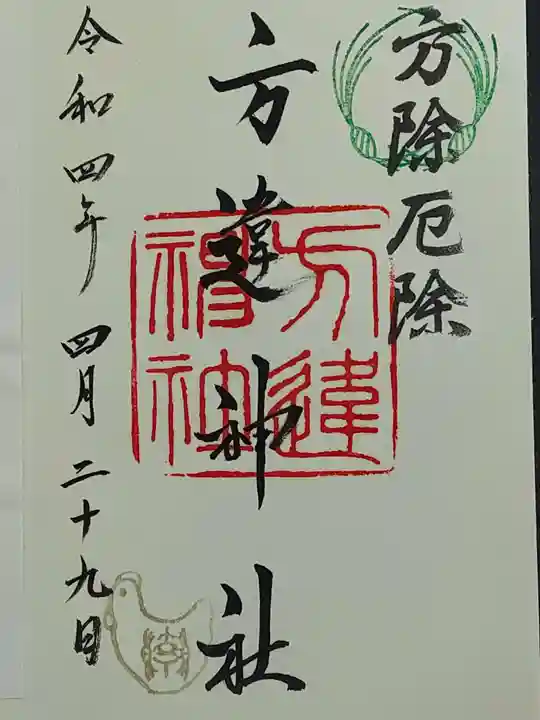 方除厄除
方違神社
方違
神社
令和四年 四月二十九日